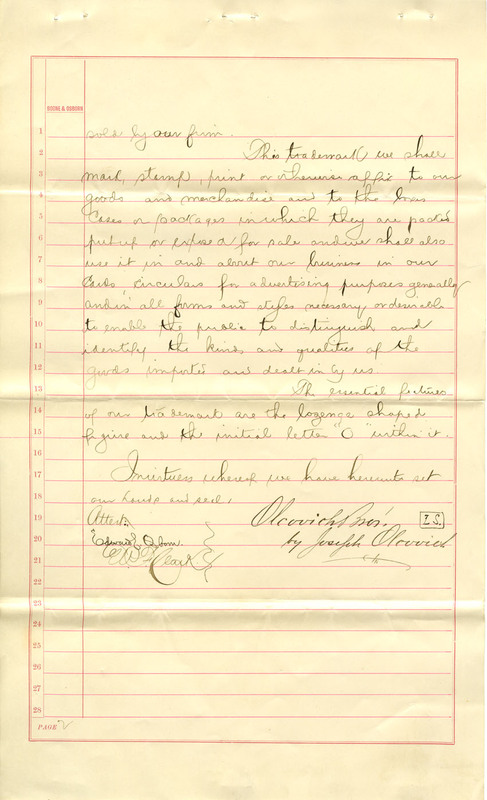 BOONE & OSBORN
1 sold by our firm.
2 This trademark we shall
3 mark, stamp, print or otherwise affix to our
4 goods and merchandise and to the boxes
5 Cases or packages in which they are packed
6 put up or exposed for sale and we shall also
7 use it in and about our business in our
8 Cards, circulars for advertising purposes generally
9 and in all forms and styles necessary or desirable
10 to enable the public to distinguish and
11 identify the kinds and qualities of the
12 goods imported and dealt in by us.
13 The essential features
14 of our trademark are the lozenge shaped
15 figure and the initial letter "O" within it.
16
17 In witness whereof we have hereunto set
18 our hands and seal.
19 Attest: Olcovich Bros. L.S.
20 Edward Osborn by Joseph Olcovich
21 Clark
22
23
24
25
26
27
28
PAGE 2